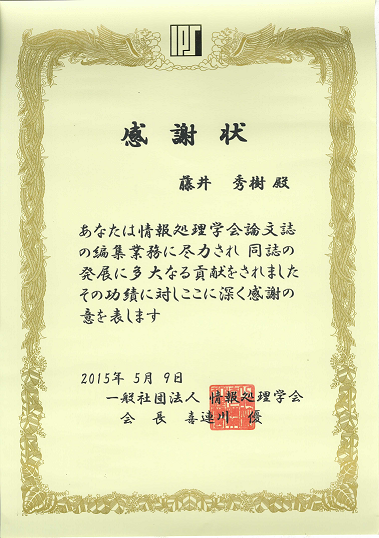 IPS
感謝状
藤井 秀樹 殿
あなたは情報処理学会論文誌
の編集業務に尽力され 同誌の
発展に多大なる貢献をされました
その功績に対しここに深く感謝の
意を表します
2015年 5月 9日
一般社団法人 情報処理学会
会 長 喜連川 優